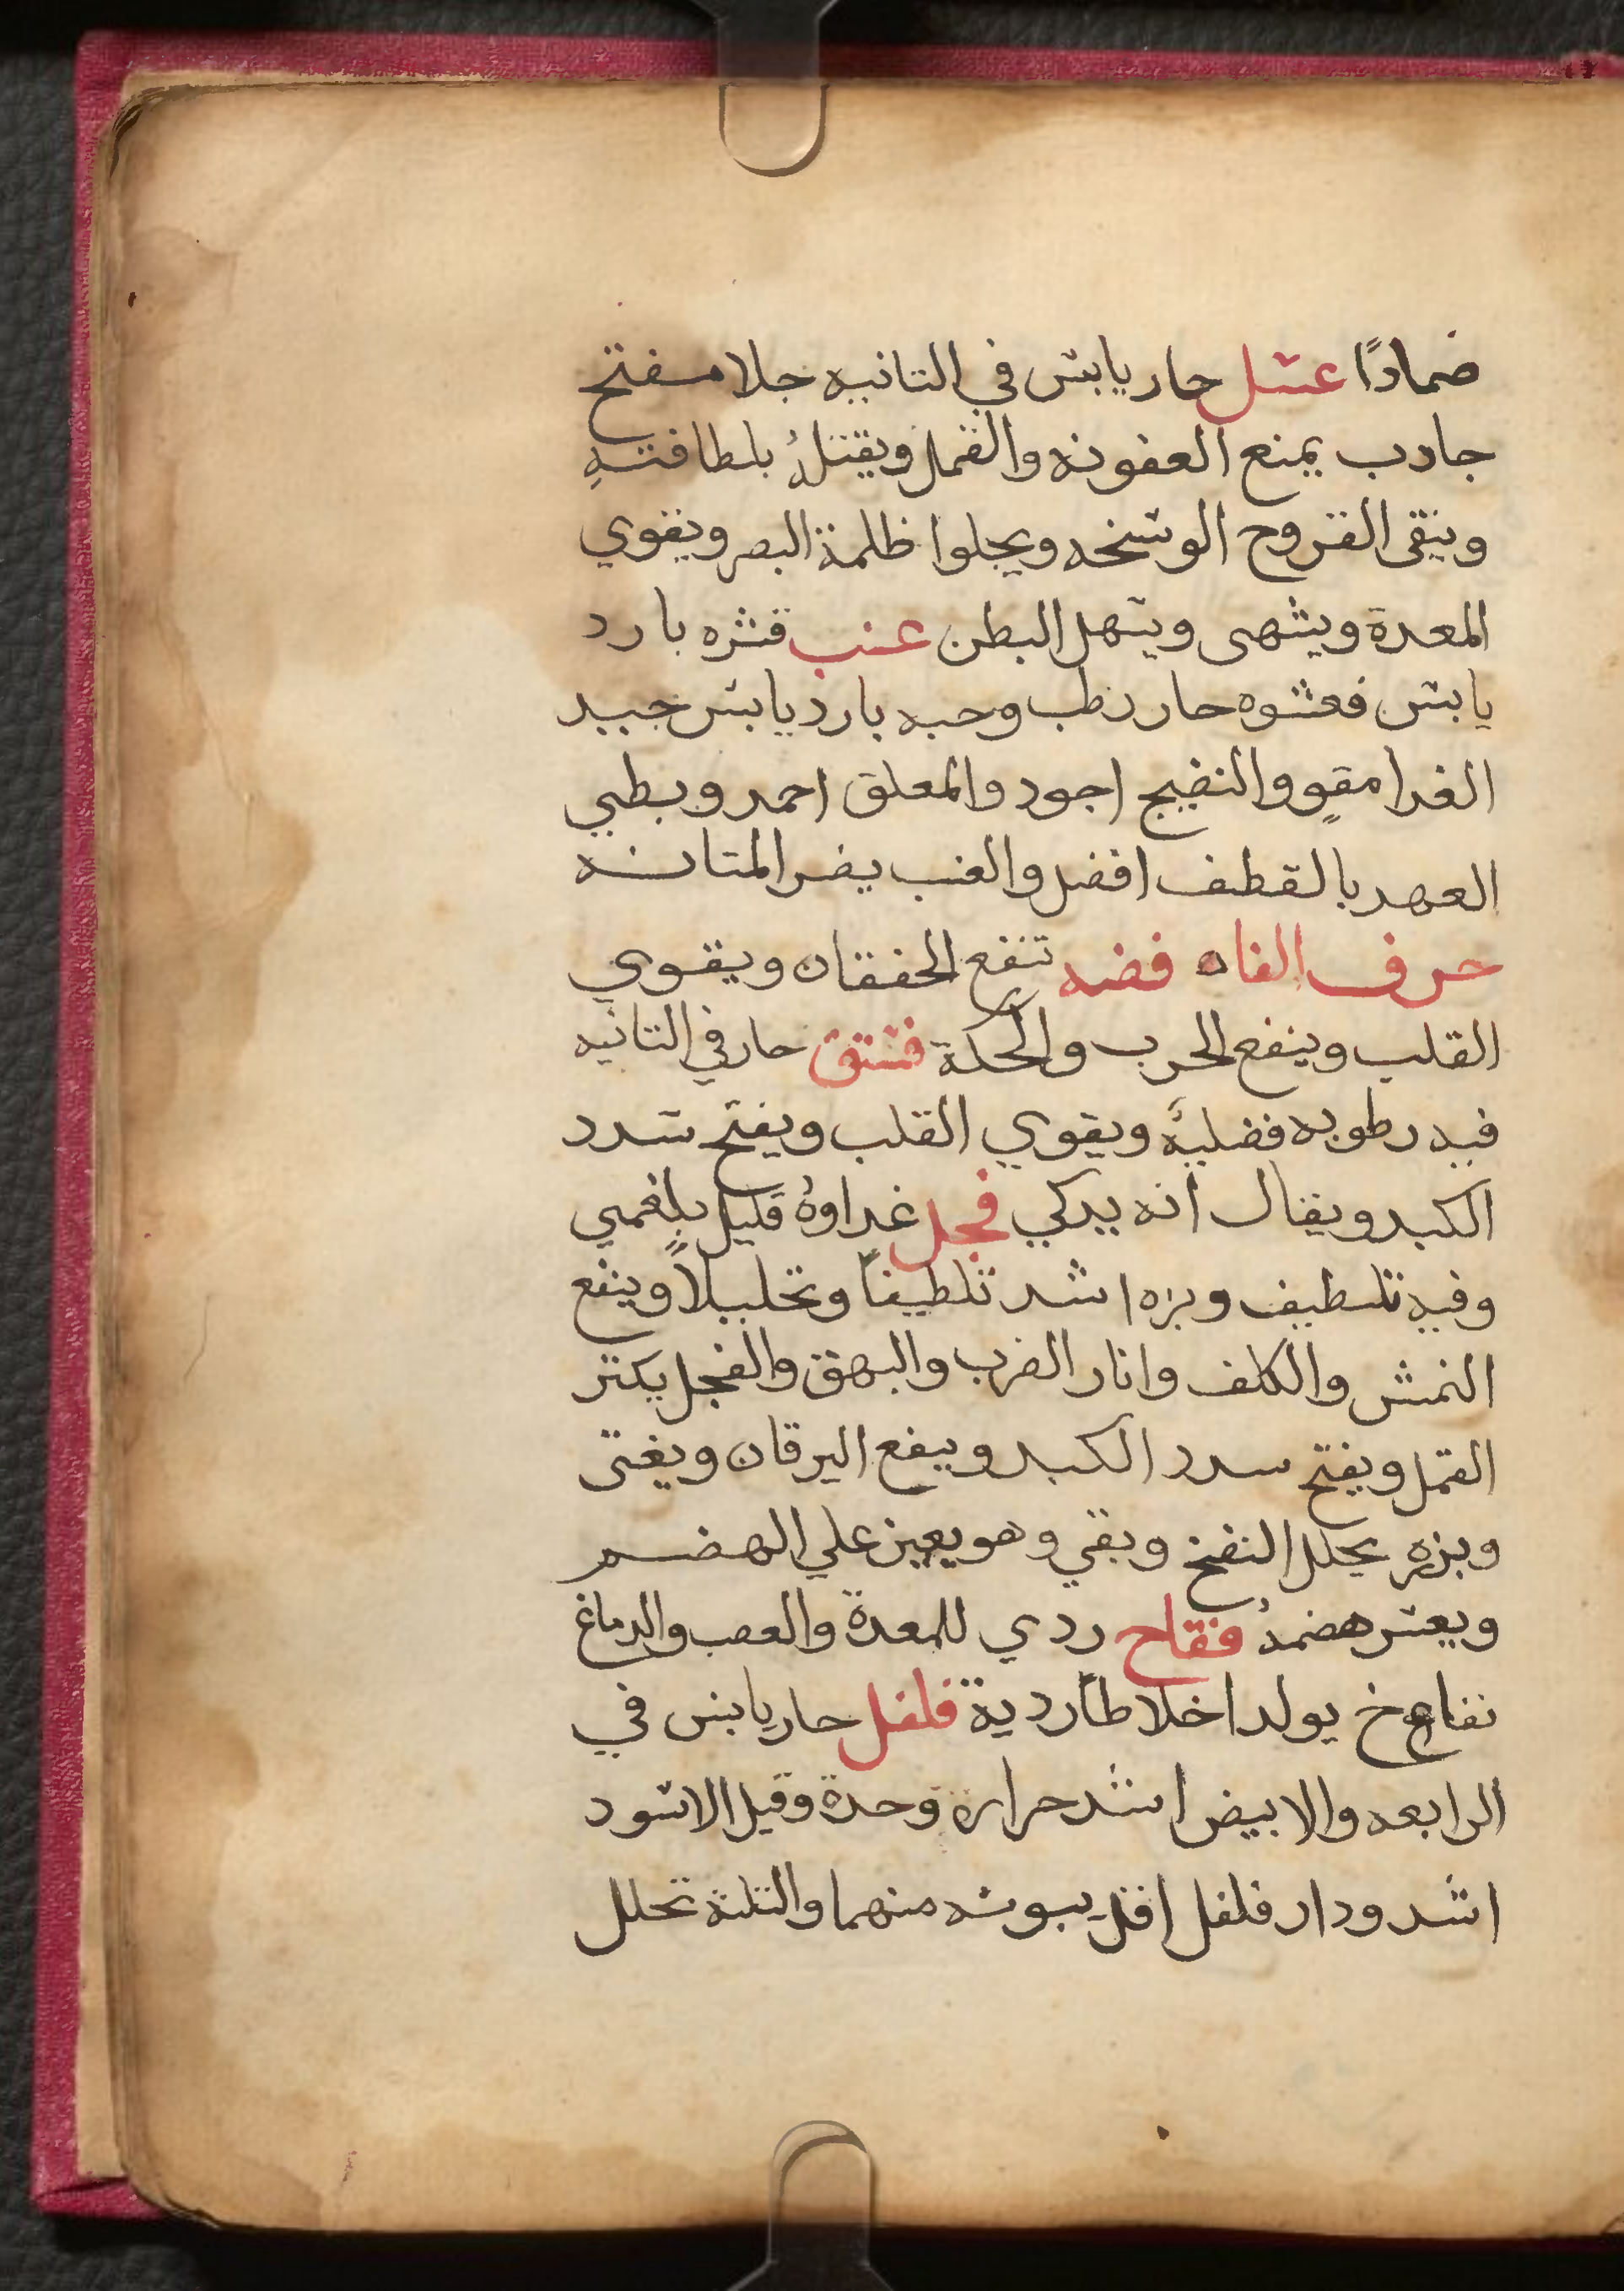 ضمادًا عسل حار يابس في التانيه جلا مفتح
جادب يمنع العفونه والقمل ويقتلهُ بلطافتهِ
وينقى القروح الوسخه ويجلوا ظلمة البصر ويقوي
المعدة ويشهى ويسهل البطن عنب قشره بارد
يابس فعشوه حار رطب وحبه بارد يابس جيد
الغدا مقوٍ والنضيج اجود والمعلق احمد وبطي
العهد بالقطف افضل والعنب يضر المتانه
حرف الفاه فضه تنفع الخفقان ويقوي
القلب وينفع الجرب والحكة فستق حار في التانيه
فيه رطوبه فضليهً ويقوي القلب ويفتح سدد
الكبد ويقال انه يدكي فجل غداوهُ قليل بلغمي
وفيه تلطيف وبزره اشد تلطيفاً وتحليلاً وينفع
النمش والكلف واتار الضرب والبهق والفجل يكتر
القمل ويفتح سدد الكبد وينفع اليرقان ويغتى
وبزره يحلل النفخ ويقي وهو يعين علي الهضم
ويعسر هضمهُ فقاح ردي للمعدة والعصب والدماغ
نفاخ يولد اخلاطاً ردية فلفل حار يابس في
الرابعه والابيض اشد حرارة وحدة وقيل الاسود
اشد ودار فلفل اقل يبوسه منهما والتلتة تحلل